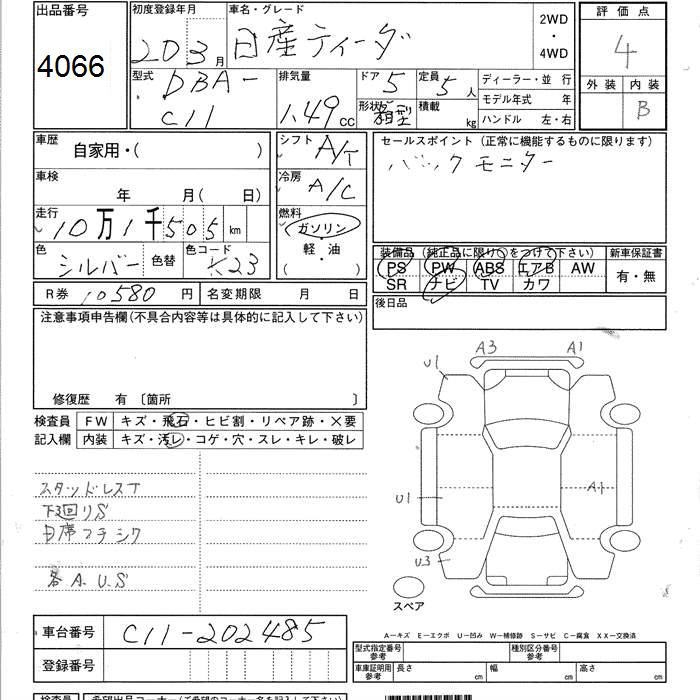 出品番号
4066
初度登録年月 車名・グレード
20 3月 日産ティーダ
2WD
・
4WD
評価点
4
外装 内装
B
型式 DBA-
C11
排気量
1.49 cc
ドア 5
形状 箱型
定員 5人
積載 kg
ディーラー・並 行
モデル年式 年
ハンドル 左・右
車歴 自家用・( )
シフト A/T
セールスポイント (正常に機能するものに限ります)
バックモニター
車検 年 月( 日)
冷房 A/C
走行 10万1千505km
燃料
ガソリン
軽・油
( ・ )
色 シルバー 色替
色コード K23
装備品 (純正品に限り○をつけて下さい)
PS PW ABS エアB AW
SR ナビ TV カワ
新車保証書
有・無
R券 10580円 名変期限 月 日
後日品
注意事項申告欄(不具合内容等は具体的に記入して下さい)
修復歴 有 〔箇所 〕
検査員
記入欄
FW キズ・飛石・ヒビ割・リペア跡・×要
内装 キズ・汚レ・コゲ・穴・スレ・キレ・破レ
スタッドレスT
下3回りS
各A.U.S
A3 A1
U1
U1 A1
U3
スペア
A-キズ E-エクボ U-凹み W-補修跡 S-サビ C-腐食 XX-交換済
車台番号 C11-202485
登録番号
型式指定番号
参考
種別区分番号
参考
車庫証明用
参考
長さ cm 幅 cm 高さ cm
検査員 希望出品コーナー(ご希望のコーナー名を記入下さい)